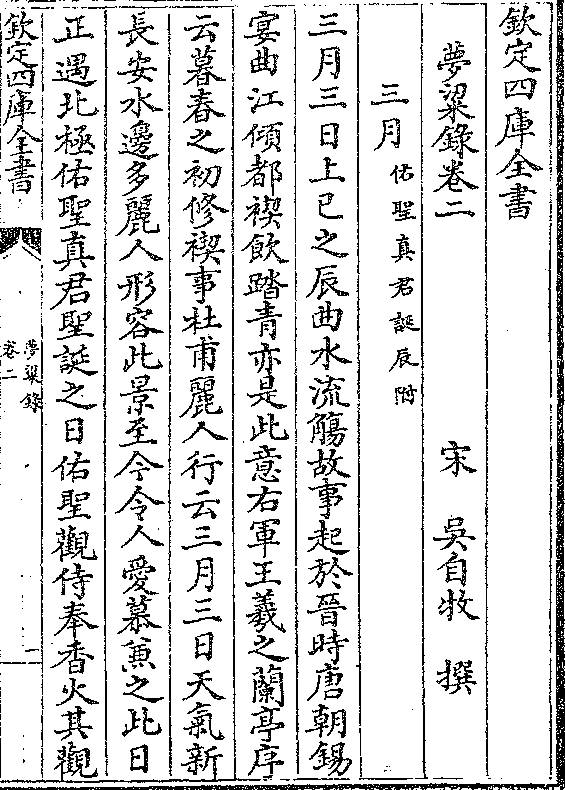 欽定四庫全書
夢粱錄卷二
宋 吳自牧 撰
三月佑聖真君誕辰附
三月三日上巳之辰曲水流觴故事起於晉時唐朝錫
宴曲江傾都禊飲踏青亦是此意右軍王羲之蘭亭序
云暮春之初修禊事杜甫麗人行云三月三日天氣新
長安水邊多麗人形容此景至今令人愛慕兼之此日
正遇北極佑聖真君聖誕之日佑聖觀侍奉香火其觀
欽定四庫全書
夢粱錄
卷二
一